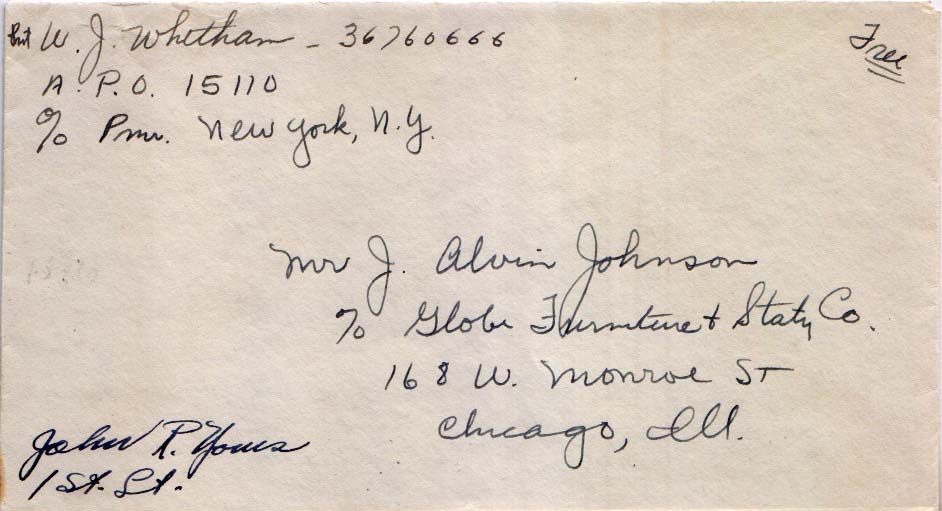 Pvt W. J. Whetham - 36760666
Free
A.P.O. 15110
c/o Pmr. New York, N.Y.
Mr J. Alvin Johnson
c/o Globe Furniture & Staty Co.
168 W. Monroe St
Chicago, Ill.
John R.
1 St. Lt.